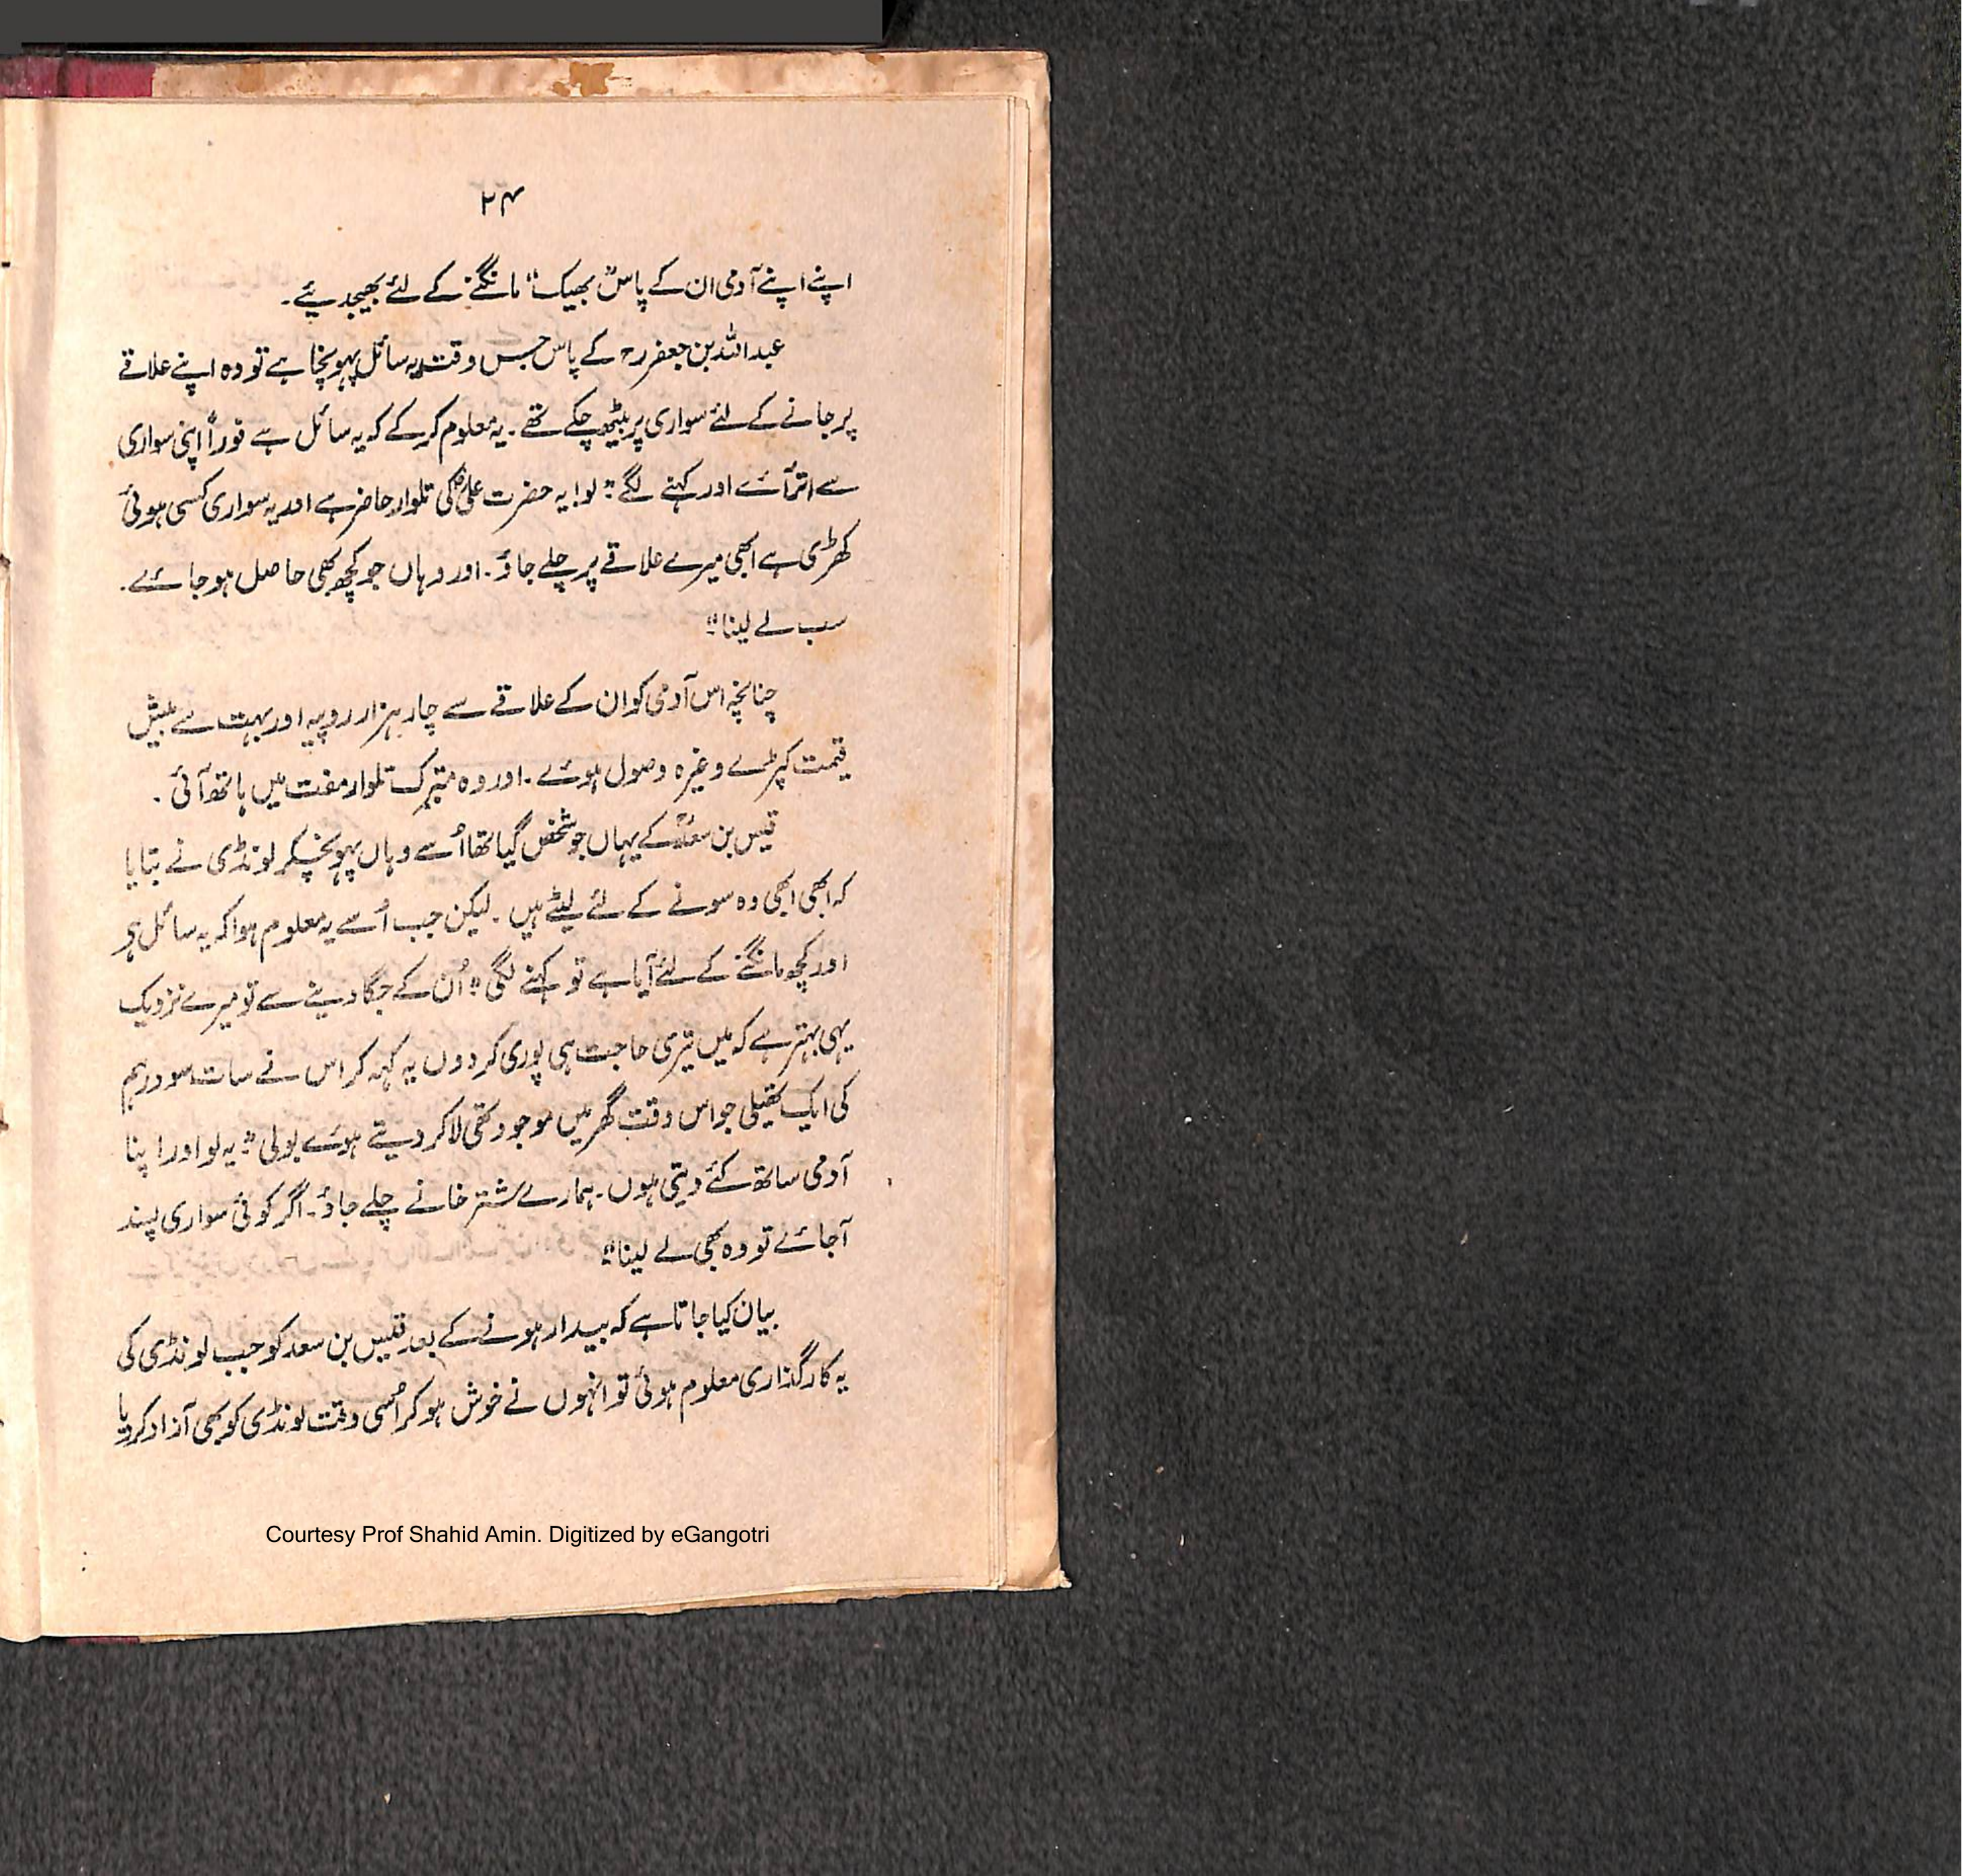 ۲۴
اپنے اپنے آدمی ان کے پاس "بھیک" مانگنے کے لئے بھیجدیئے۔
عبداللہ بن جعفررؓ کے پاس جس وقت یہ سائل پہونچا ہے تو وہ اپنے علاقے
پر جانے کے لئے سواری پر بیٹھ چکے تھے۔ یہ معلوم کر کے کہ یہ سائل ہے فوراً اپنی سواری
سے اتر آئے اور کہنے لگے: "لو! یہ حضرت علیؓ کی تلوار حاضر ہے اور یہ سواری کسی ہوئی
کھڑی ہے ابھی میرے علاقے پر چلے جاؤ۔ اور وہاں جو کچھ بھی حاصل ہو جائے۔
سب لے لینا"
چنانچہ اس آدمی کو ان کے علاقے سے چار ہزار روپیہ اور بہت سے بیش
قیمت کپڑے وغیرہ وصول ہوئے۔ اور وہ متبرک تلوار مفت میں ہاتھ آئی۔
قیس بن سعدؓ کے یہاں جو شخص گیا تھا اُسے وہاں پہونچکر لونڈی نے بتایا
کہ ابھی ابھی وہ سونے کے لئے لیٹے ہیں۔ لیکن جب اُسے یہ معلوم ہوا کہ یہ سائل ہو
اور کچھ مانگنے کے لئے آیا ہے تو کہنے لگی "اُن کے جگا دینے سے تو میرے نزدیک
یہی بہتر ہے کہ میں تیری حاجت ہی پوری کر دوں یہ کہہ کر اس نے سات سو درہم
کی ایک تھیلی جو اس وقت گھر میں موجود تھی لا کر دیتے ہوئے بولی "یہ لو اور اپنا
آدمی ساتھ کئے دیتی ہوں۔ ہمارے شتر خانے چلے جاؤ۔ اگر کوئی سواری پسند
آجائے تو وہ بھی لے لینا"
بیان کیا جاتا ہے کہ بیدار ہونے کے بعد قیس بن سعد کو جب لونڈی کی
یہ کارگذاری معلوم ہوئی تو انہوں نے خوش ہو کر اُسی وقت لونڈی کو بھی آزاد کر دیا
Courtesy Prof Shahid Amin. Digitized by eGangotri